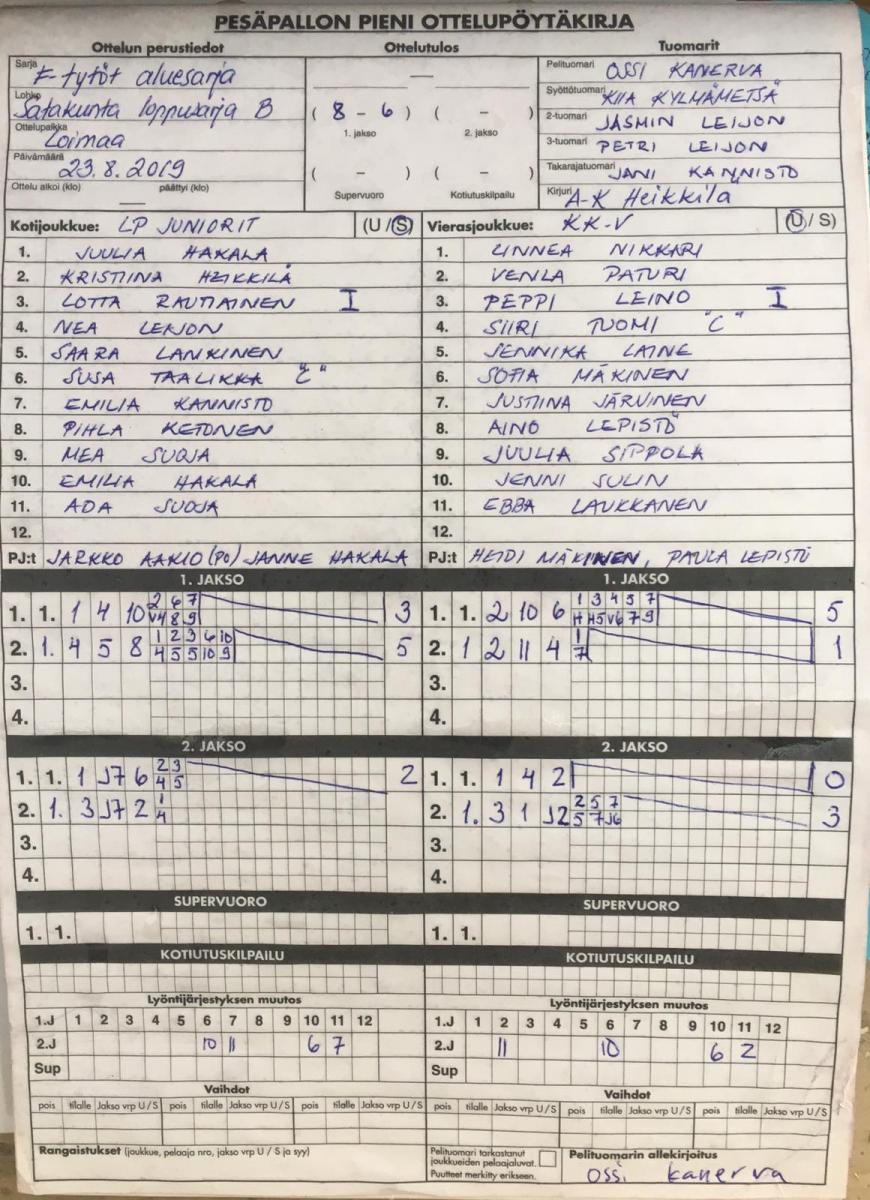 PESÄPALLON PIENI OTTELUPÖYTÄKIRJA
Ottelun perustiedot Ottelutulos Tuomarit
Sarja F-tytöt aluesarja
Lohko Satakunta loppusarja B
Ottelupaikka Loimaa
Päivämäärä 23.8.2019
Ottelu alkoi (klo) — päättyi (klo)
—
( 8 - 6 ) ( - )
1. jakso 2. jakso
( - ) ( - )
Supervuoro Kotiutuskilpailu
Pelituomari OSSI KANERVA
Syöttötuomari KIIA KYLMÄMETSÄ
2-tuomari JASMIN LEIJON
3-tuomari PETRI LEIJON
Takarajatuomari JANI KANNISTO
Kirjuri A-K Heikkilä
Kotijoukkue: LP JUNIORIT (U / S)
1. JUULIA HAKALA
2. KRISTIINA HEIKKILÄ
3. LOTTA RAUTIAINEN I
4. NEA LEIJON
5. SAARA LANKINEN
6. SUSA TAALIKKA "C"
7. EMILIA KANNISTO
8. PIHLA KETONEN
9. MEA SUOJA
10. EMILIA HAKALA
11. ADA SUOJA
12.
PJ:t JARKKO AAKIO (PO) JANNE HAKALA
Vierasjoukkue: KK-V (U / S)
1. LINNEA NIKKARI
2. VENLA PATURI
3. PEPPI LEINO I
4. SIIRI TUOMI "C"
5. JENNIKA LAINE
6. SOFIA MÄKINEN
7. JUSTIINA JÄRVINEN
8. AINO LEPISTÖ
9. JUULIA SIPPOLA
10. JENNI SULIN
11. EBBA LAUKKANEN
12.
PJ:t HEIDI MÄKINEN, PAULA LEPISTÖ
1. JAKSO
1. 1. 1 4 10 2 6 7 3
V4 8 9
2. 1. 4 5 8 1 2 3 6 10 5
4 5 5 10 9
3.
4.
1. JAKSO
1. 1. 2 10 6 1 3 4 5 7 5
H H5 V6 7 9
2. 1 2 11 4 1 1
7
3.
4.
2. JAKSO
1. 1. 1 J7 6 2 3 2
4 5
2. 1. 3 J7 2 1
4
3.
4.
2. JAKSO
1. 1. 1 4 2 0
2. 1. 3 1 J2 2 5 7 3
5 7 J6
3.
4.
SUPERVUORO SUPERVUORO
1. 1. 1. 1.
KOTIUTUSKILPAILU KOTIUTUSKILPAILU
Lyöntijärjestyksen muutos
1.J 1 2 3 4 5 6 7 8 9 10 11 12
2.J 10 11 6 7
Sup
Vaihdot
pois tilalle Jakso vrp U / S pois tilalle Jakso vrp U / S pois tilalle Jakso vrp U / S
Lyöntijärjestyksen muutos
1.J 1 2 3 4 5 6 7 8 9 10 11 12
2.J 11 10 6 2
Sup
Vaihdot
pois tilalle Jakso vrp U / S pois tilalle Jakso vrp U / S pois tilalle Jakso vrp U / S
Rangaistukset (joukkue, pelaaja nro, jakso vrp U / S ja syy)
Pelituomari tarkastanut
joukkueiden pelaajaluvat.
Puutteet merkitty erikseen.
Pelituomarin allekirjoitus
ossi kanerva